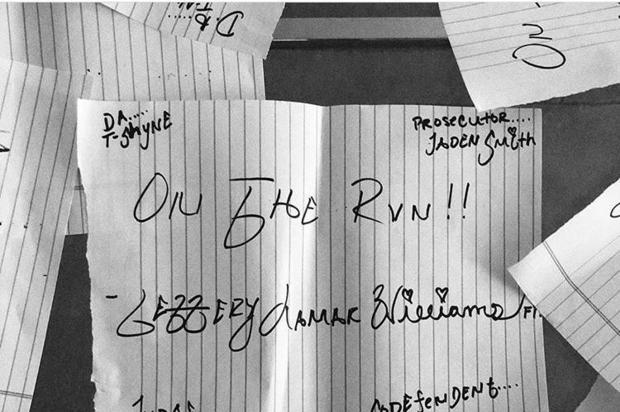 DA.....
T-ShyNE
PROSECUTOR....
JADEN Smith
ON THE RUN!!
- JEFFERY LAMAR Williams
CODEfENDENT....